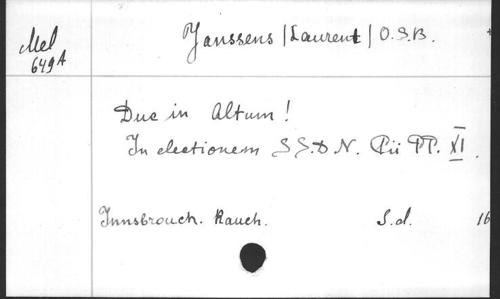 Mel
649A
Janssens /Laurent/ O.S.B.
Duc in Altum!
In electionem SS.D N. Pii PP. XI.
Innsbrouch. Rauch. S.d. 16